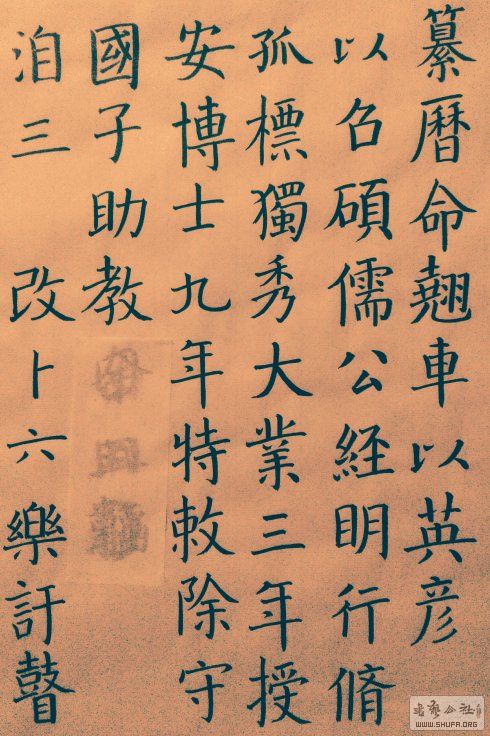 纂曆命翹車以英彦
以召碩儒公経明行脩
孤標獨秀大業三年授
安博士九年特敕除守
國子助教
洎三 改卜六樂訏瞽
WWW.SHUFA.ORG